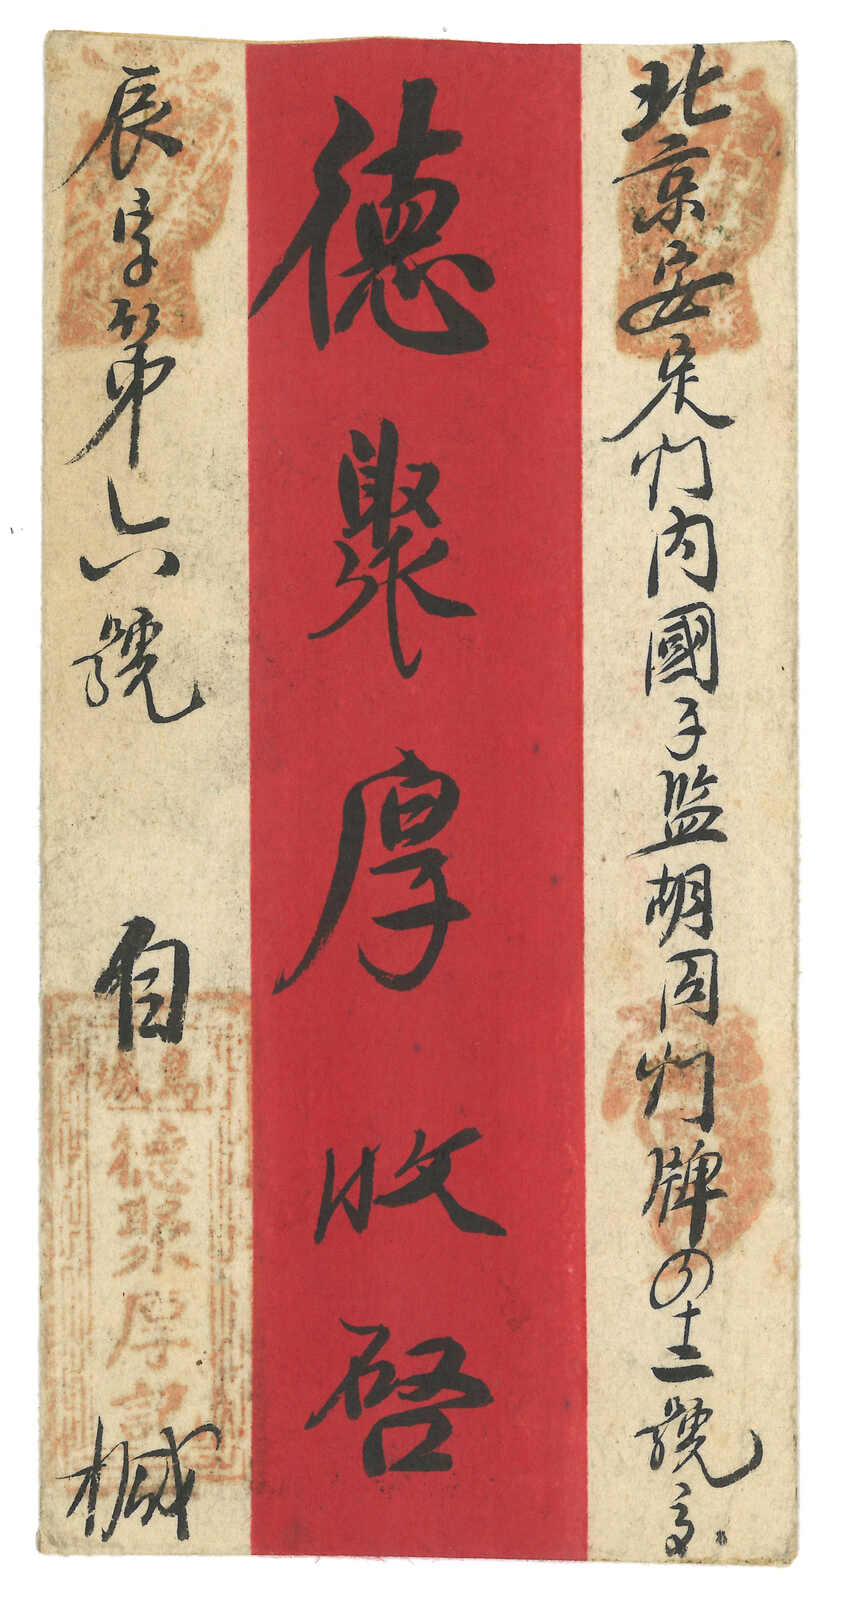 北京安定门内國子監胡同门牌四十二號交
德聚厚收啓
辰字第六號 自 緘
德聚厚記